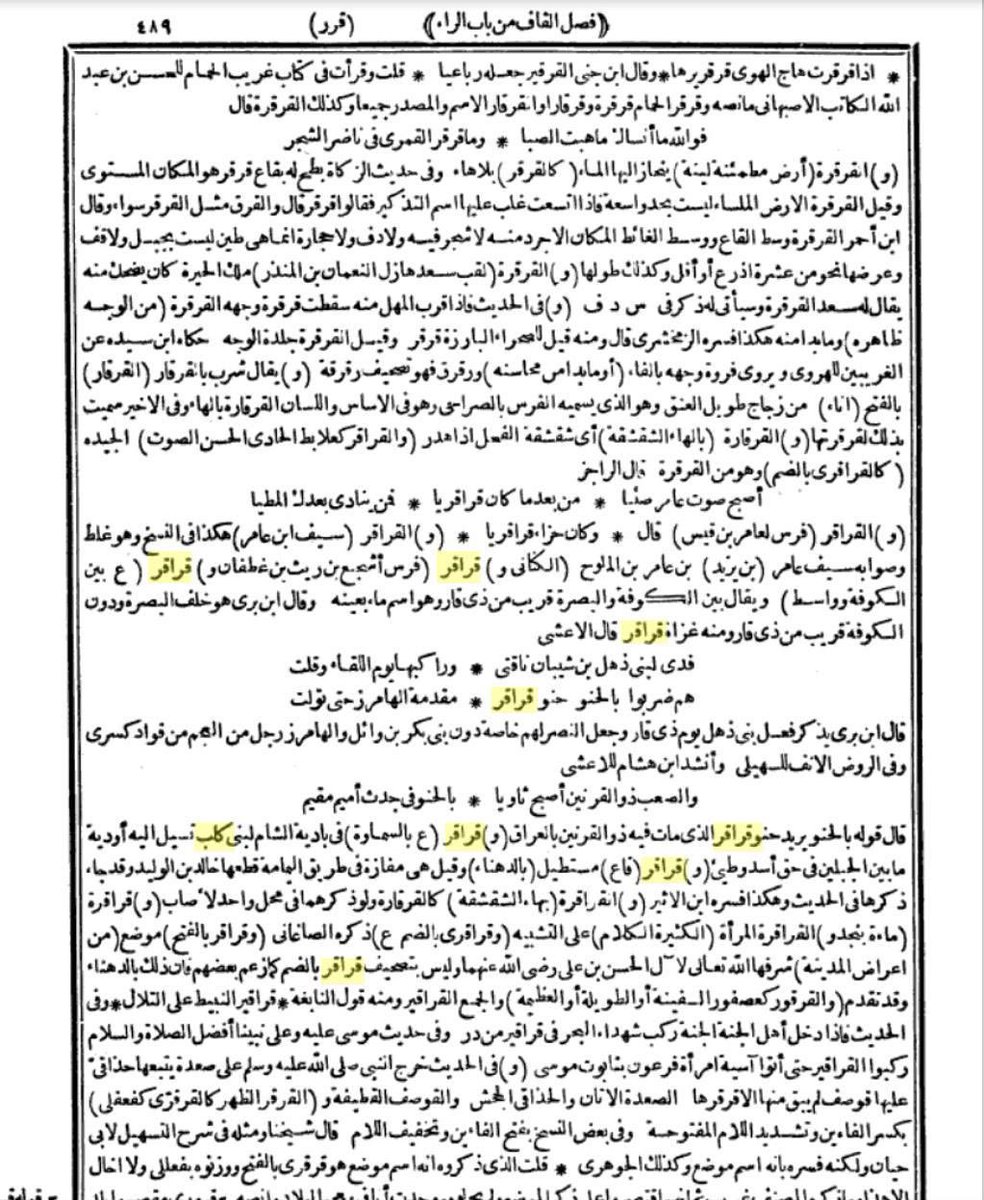 ٤٨٩ (قرر) ((فصل القاف من باب الراء))
* اذا قرقرت هاج الهوى قرقريرها * وقال ابن جنى القرقير جعله رباعيا * قلت وقرأت فى كتاب غريب الحمام للحسن بن عبد
الله الكاتب الاصبهانى مانصه وقرقر الحمام قرقرة وقرقارا والقرقار الاسم والمصدر جميعا وكذلك القرقرة قال
فوالله ما أنساك ماهبت الصبا * وماقرقر القمرى فى ناضر الشجر
(و) القرقرة (أرض مطمئنة لينة) ينحاز اليها الماء (كالقرقر) بلاهاء وفى حديث الزكاة بطح له بقاع قرقر هو المكان المستوى
وقيل القرقرة الارض الملساء ليست بجد واسعة فاذا اتسعت غلب عليها اسم التذكير فقالوا قرقر قال والقرق مثل القرقر سواء وقال
ابن أحمر القرقرة وسط القاع ووسط الغائط المكان الاجرد منه لاشجر فيه ولادف ولاحجارة انماهى طين ليست بجبل ولاقف
وعرضها نحو من عشرة اذرع أو أقل وكذلك طولها (و) القرقرة (لقب سعد هازل النعمان بن المنذر) ملك الحيرة كان يضحك منه
يقال له سعد القرقرة وسيأتى له ذكر فى س د ف (و) فى الحديث فاذا قرب المهل منه سقطت قرقرة وجهه القرقرة (من الوجه
ظاهره) ومابدا منه هكذا فسره الزمخشرى قال ومنه قيل للصحراء البارزة قرقر وقيل القرقرة جلدة الوجه حكاه ابن سيده عن
الغريبين للهروى ويروى فروة وجهه بالفاء (أومابدا من محاسنه) ورقرق فهو تصحيف رقرقة (و) يقال شرب بالقرقار (القرقار)
بالفتح (اناء) من زجاج طويل العنق وهو الذى يسميه الفرس بالصراحى وهو فى الاساس واللسان القرقارة بالهاء وفى الاخير سميت
بذلك لقرقرتها (و) القرقارة (بالهاء الشقشقة) أى شقشقة الفحل اذا هدر (والقراقر كعلابط الحادى الحسن الصوت) الجيده
(كالقراقرى بالضم) وهو من القرقرة قال الراجز
أصبح صوت عامر صئيا * من بعدما كان قراقريا * فمن ينادى بعدك المطيا
(و) القراقر (فرس لعامر بن قيس) قال * وكان حزاء قراقريا * (و) القراقر (سيف ابن عامر) هكذا فى النسخ وهو غلط
وصوابه سيف عامر (بن يزيد) بن عامر بن الملوح (الكنانى و) قراقر (فرس أشجع بن ريث بن غطفان و) قراقر (ع بين
الكوفة وواسط) ويقال بين الكوفة والبصرة قريب من ذى قار وهو اسم ماء بعينه وقال ابن برى هو خلف البصرة ودون
الكوفة قريب من ذى قار ومنه غزاة قراقر قال الاعشى
فدى لبنى ذهل بن شيبان ناقتى * وراكبها يوم اللقاء وقلت
هم ضربوا بالحنو حنو قراقر * مقدمة الهامرز حتى تولت
قال ابن برى يذكر فعل بنى ذهل يوم ذى قار وجعل النصر لهم خاصة دون بنى بكر بن وائل والهامرز رجل من العجم من قواد كسرى
وفى الروض الانف للسهيلى وأنشد ابن هشام للاعشى
والصعب ذو القرنين أصبح ثاويا * بالحنو فى جدث أميم مقيم
قال قوله بالحنو يريد حنو قراقر الذى مات فيه ذو القرنين بالعراق (و) قراقر (ع بالسماوة) فى بادية الشام لبنى كلب تسيل اليه أودية
مابين الجبلين فى حق أسد وطيئ (و) قراقر (قاع) مستطيل (بالدهناء) وقيل هى مفازة فى طريق اليمامة قطعها خالد بن الوليد وقد جاء
ذكرها فى الحديث وهكذا فسره ابن الاثير (و) القراقرة (بهاء الشقشقة) كالقرقارة ولو ذكرهما فى محل واحد لاصاب (و) قراقرة
(ماءة بنجد و) القراقرة المرأة (الكثيرة الكلام) على التشبيه (وقراقرى بالضم ع) ذكره الصاغانى (وقراقر بالفتح) موضع (من
اعراض المدينة) شرفها الله تعالى لآل الحسن بن على رضى الله عنهما وليس بتصحيف قراقر بالضم كازعم بعضهم فان ذلك بالدهناء
وقد تقدم (والقرقور كعصفور السفينة أو الطويلة أو العظيمة) والجمع القراقير ومنه قول النابغة * قراقير النبيط على التلال * وفى
الحديث فاذا دخل أهل الجنة الجنة ركب شهداء البحر فى قراقير من در وفى حديث موسى عليه وعلى نبينا أفضل الصلاة والسلام
ركبوا القراقير حتى أتوا آسية امرأة فرعون بتابوت موسى (و) فى الحديث خرج النبى صلى الله عليه وسلم على صعدة يتبعها حذاقى
عليها قوصف لم يبق منها الا قرقرها الصعدة الاتان والحذاقى الجحش والقوصف القطيفة و (القرقر الظهر كالقرقرى كفعفلى)
بكسر الفاءين وتشديد اللام المفتوحة وفى بعض النسخ بفتح الفاءين وتخفيف اللام قال شيخنا ومثله فى شرح التسهيل لابى
حيان ولكنه فسره بانه اسم موضع وكذلك الجوهرى * قلت الذى ذكروه انه اسم موضع هو قرقرى بالفتح ووزنوه بفعللى ولا اخال